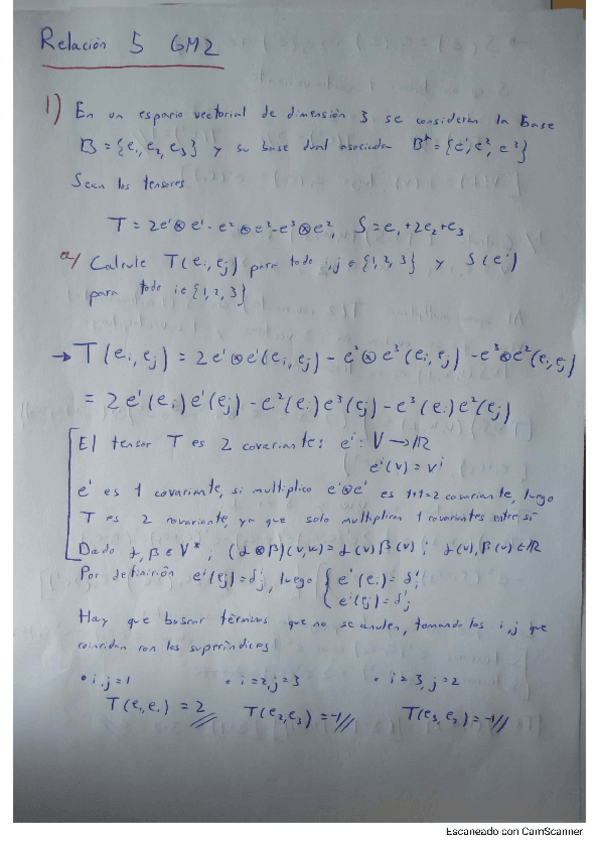 Relación 5 GM2
1) En un espacio vectorial de dimensión 3 se consideran la base
B = {e₁, e₂, e₃} y su base dual asociada B* = {e¹, e², e³}
Sean los tensores
T = 2e¹⊗e¹ - e²⊗e³ - e³⊗e², S = e₁ + 2e₂ + e₃
a) Calcule T(eᵢ, eⱼ) para todo i,j ∈ {1, 2, 3} y S(eⁱ)
para todo i ∈ {1, 2, 3}
→ T(eᵢ, eⱼ) = 2e¹⊗e¹(eᵢ, eⱼ) - e²⊗e³(eᵢ, eⱼ) - e³⊗e²(eᵢ, eⱼ)
= 2e¹(eᵢ)e¹(eⱼ) - e²(eᵢ)e³(eⱼ) - e³(eᵢ)e²(eⱼ)
El tensor T es 2 covariante: eⁱ: V → ℝ
eⁱ(v) = vⁱ
e¹ es 1 covariante, si multiplico e¹⊗e¹ es 1+1=2 covariante, luego
T es 2 covariante, ya que solo multiplican 1 covariantes entre sí
Dado α, β ∈ V*, (α⊗β)(v,w) = α(v)β(w); α(v), β(w) ∈ ℝ
Por definición eⁱ(eⱼ) = δⁱⱼ, luego { e¹(eᵢ) = δ¹ᵢ
eⁱ(eⱼ) = δⁱⱼ
Hay que buscar términos que no se anulen, tomando los i,j que
coincidan con los superíndices
• i,j = 1 • i = 2, j = 3 • i = 3, j = 2
T(e₁, e₁) = 2 T(e₂, e₃) = -1 T(e₃, e₂) = -1
Escaneado con CamScanner